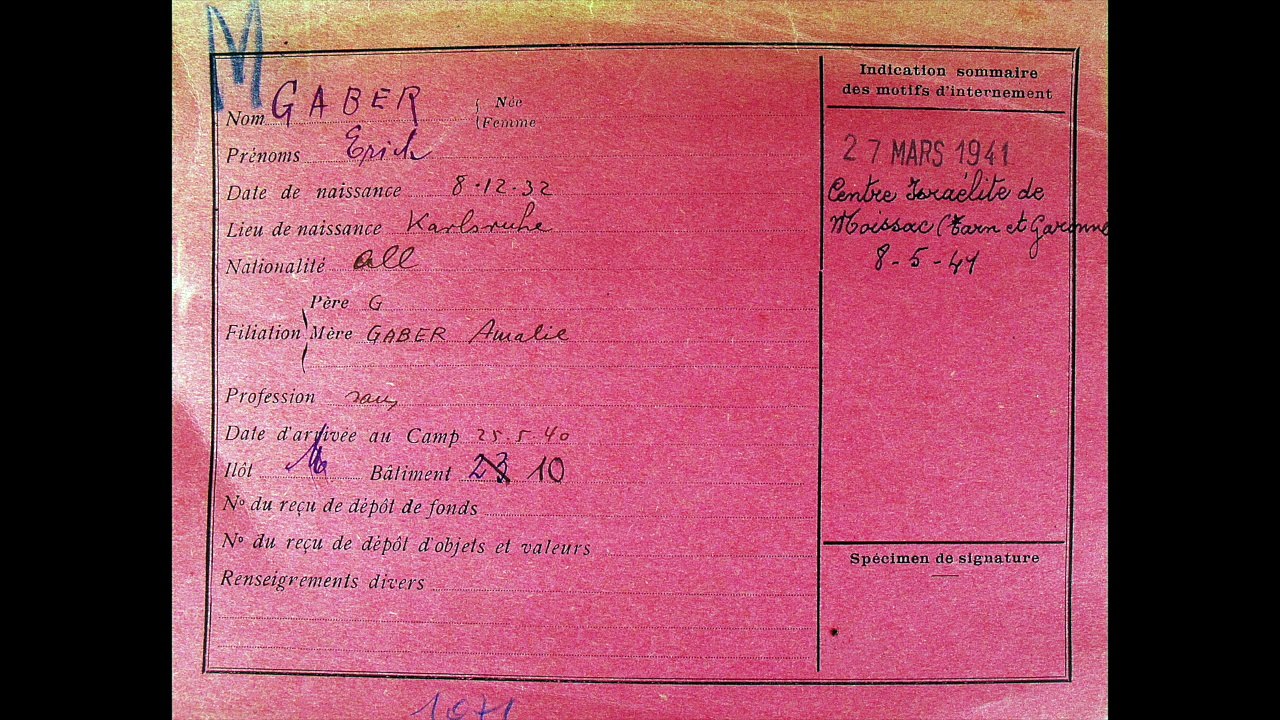 M
Nom GABER Née
Femme
Prénoms Erich
Date de naissance 8.12.32
Lieu de naissance Karlsruhe
Nationalité all
Père G
Filiation Mère GABER Amalie
Profession sans
Date d'arrivée au Camp 25.5.40
Ilôt M Bâtiment 23 10
No du reçu de dépôt de fonds
No du reçu de dépôt d'objets et valeurs
Renseignements divers
Indication sommaire
des motifs d'internement
27 MARS 1941
Centre Israélite de
Moissac (Tarn et Garonne
8-5-41
Spécimen de signature